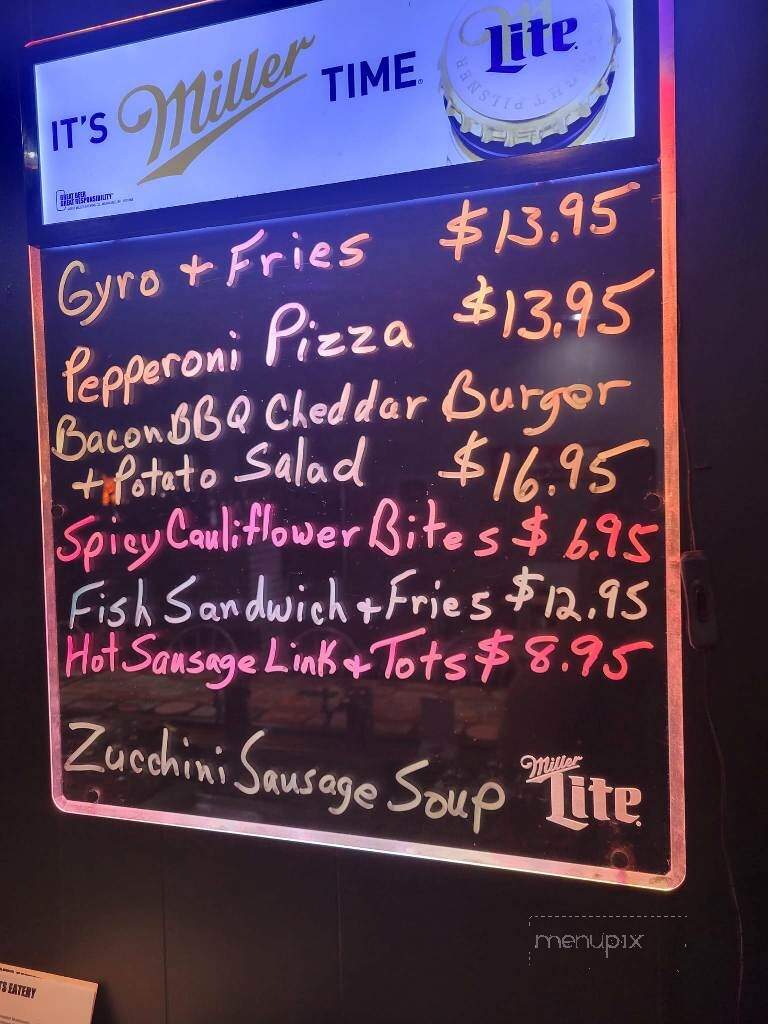 IT'S Miller TIME
Lite
GREAT BEER
GREAT RESPONSIBILITY
Gyro + Fries $13.95
Pepperoni Pizza $13.95
Bacon BBQ Cheddar Burger
+ Potato Salad $16.95
Spicy Cauliflower Bites $6.95
Fish Sandwich + Fries $12.95
Hot Sausage Link + Tots $8.95
Zucchini Sausage Soup
Miller
Lite
menupix
EATERY